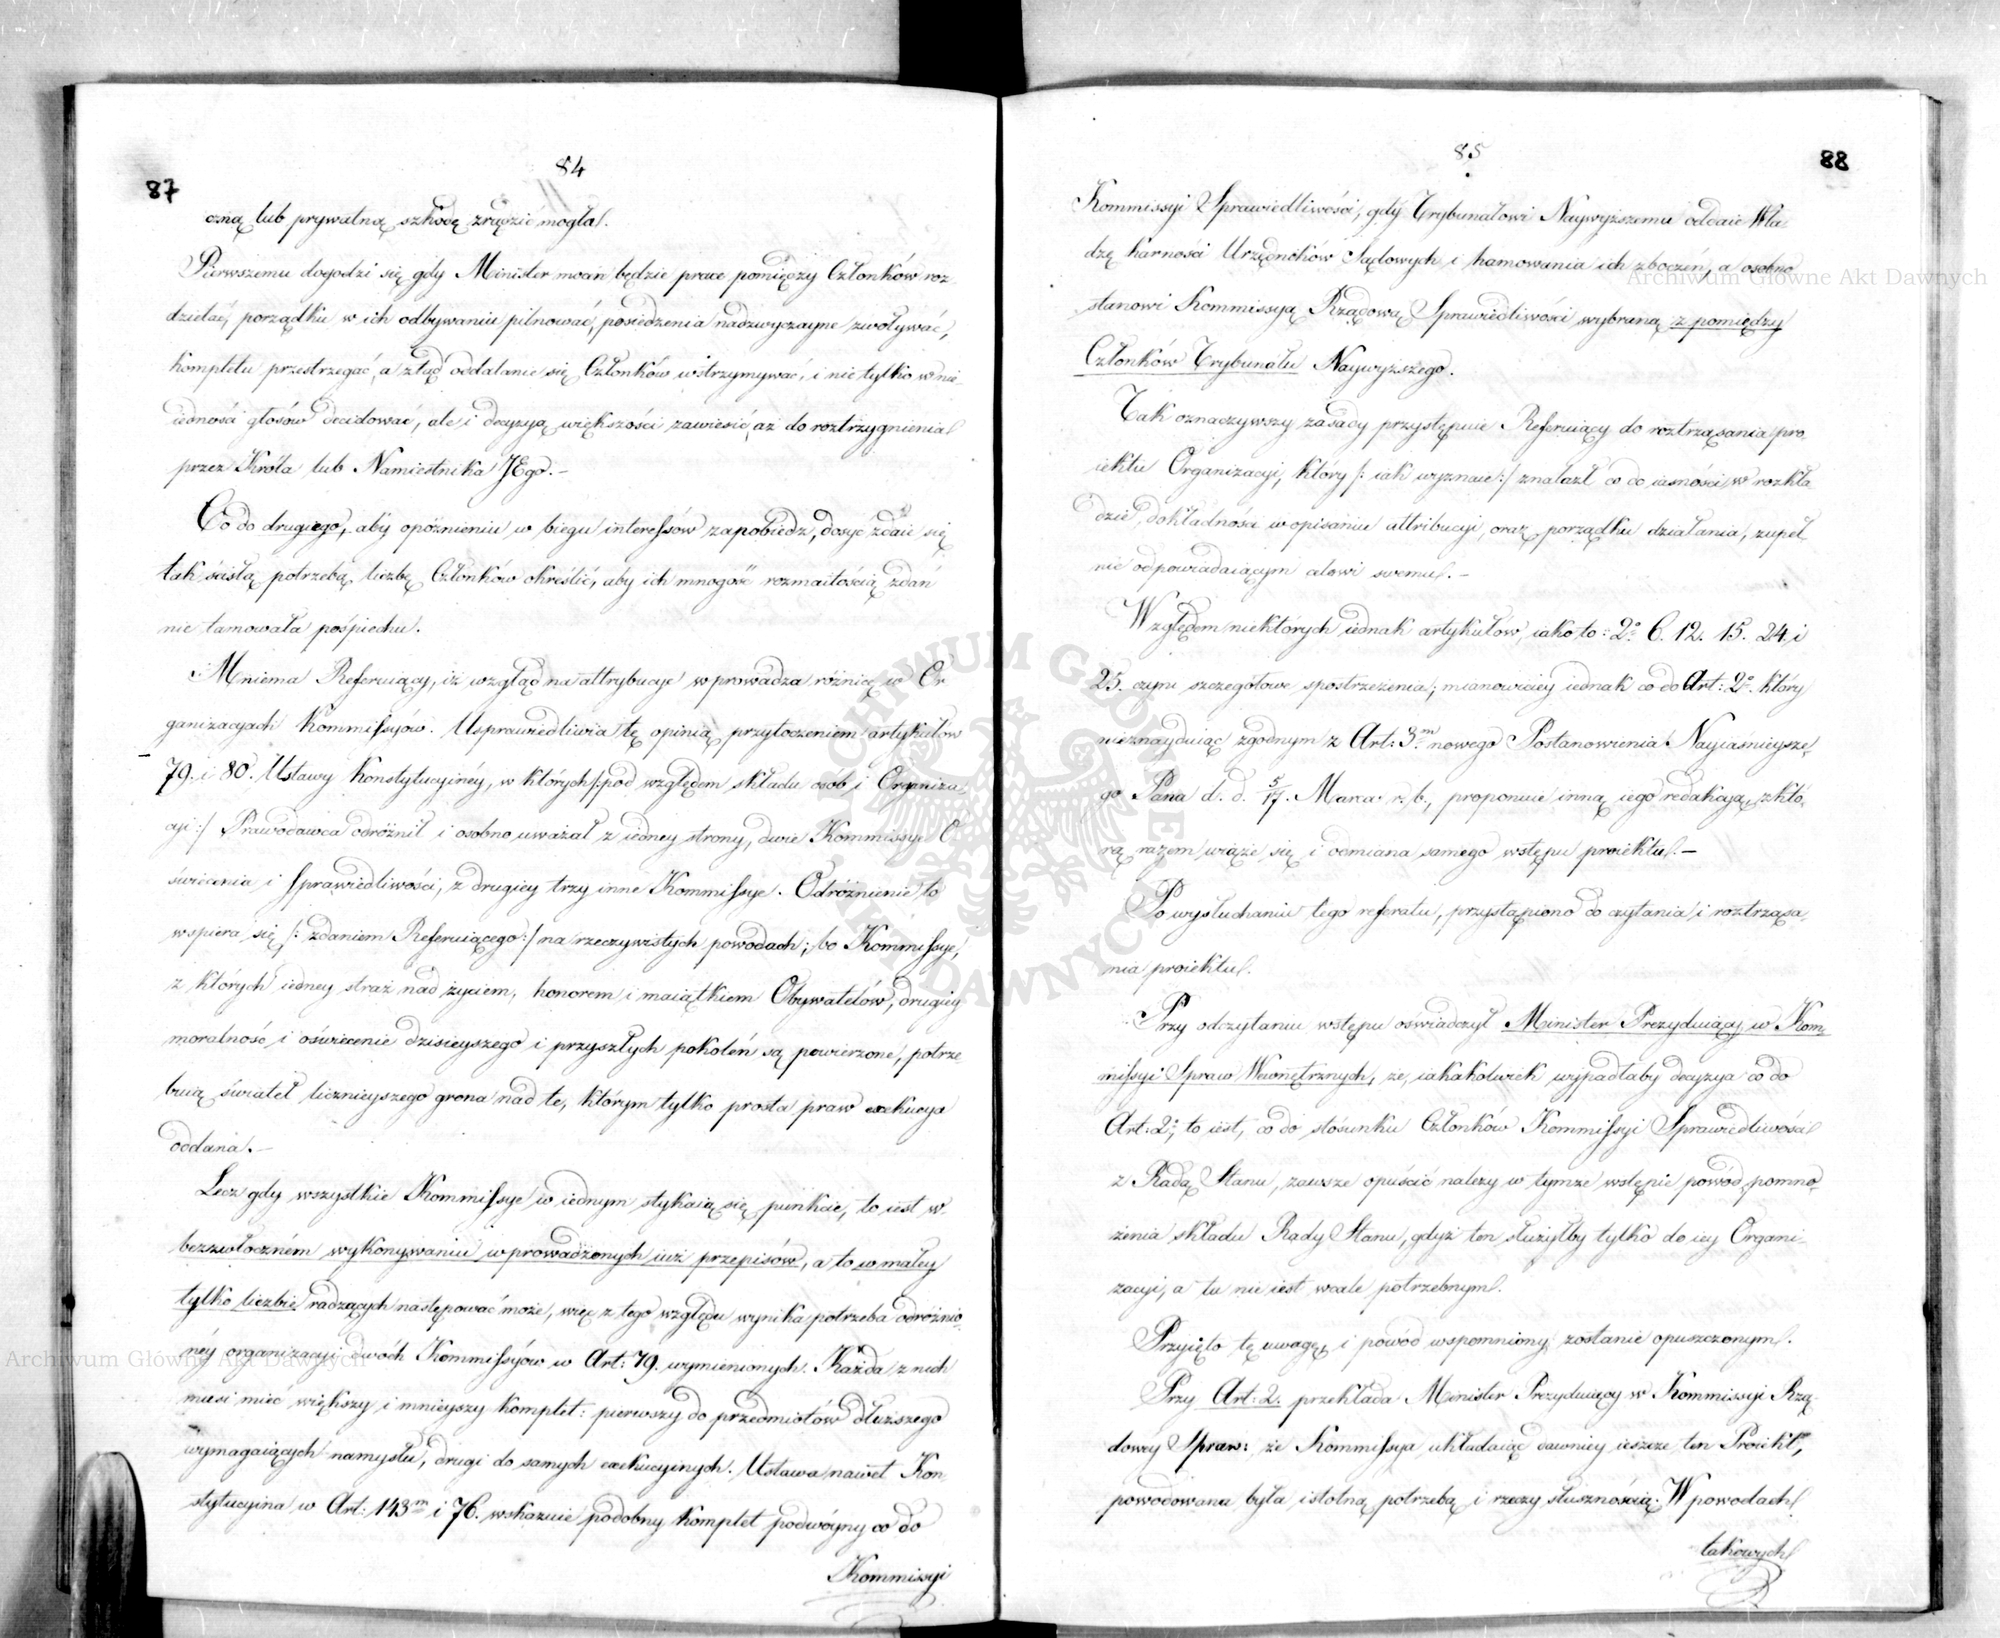 84
87
czną lub prywatną szkodę zrządzić mogła.
Pierwszemu dogodzi się gdy Minister mocen będzie prace pomiędzy Członków roz-
dzielać, porządku w ich odbywaniu pilnować, posiedzenia nadzwyczayne zwoływać,
kompletu przestrzegać, a ztąd oddalanie się Członków wstrzymywać, i nie tylko w nie
iedności głosów decidować, ale i decyzyą większości zawiesić, aż do roztrzygnienia
przez Króla lub Namiestnika JEgo.–
Co do drugiego, aby opóźnieniu w biegu interessów zapobiedz, dosyć zdaie się
tak ścisłą potrzebą liczbę Członków określić, aby ich mnogość rozmaitością zdań
nie tamowała pośpiechu.
Mniema Referuiący, iż wzgląd na attrybucye wprowadza różnicę w Or
ganizacyach Kommissyów. Usprawiedliwia tę opinią przytoczeniem artykułów
79. i 80. Ustawy Konstytucyinéy, w których /:pod względem składu osób i Organiza
cyi:/ Prawodawca odróżnił i osobno uważał z iedney strony, dwie Kommissye O
świecenia i Sprawiedliwości, z drugiey trzy inne Kommissye. Odróżnienie to
wspiera się /: zdaniem Referuiącego:/ na rzeczywistych powodach; bo Kommissye,
z których iedney straż nad życiem, honorem i maiątkiem Obywatelów, drugiey
moralność i oświecenie dzisieyszego i przyszłych pokoleń są powierzone, potrze
buią świateł licznieyszego grona nad te, którym tylko prosta praw exekucya
oddana.–
Lecz gdy wszystkie Kommissye w iednym stykaią się punkcie, to iest w
bezzwłoczném wykonywaniu wprowadzonych iuż przepisów, a to w małey
tylko liczbie radzących następować może, więc z tego względu wynika potrzeba odróżnio
néy organizacyi dwóch Kommissyów w Art: 79. wymienionych. Każda z nich
musi mieć większy i mnieyszy komplet: pierwszy do przedmiotów dłuższego
wymagaiących namysłu, drugi do samych exekucyinych. Ustawa nawet Kon
stytucyina w Art: 143m i 76. wskazuie podobny komplet podwóyny co do
Kommissyi
85
88
Kommissyi Sprawiedliwości, gdy Trybunałowi Naywyższemu oddaie Wła-
dzę karności Urzędników Sądowych i hamowania ich zboczeń, a osobno
stanowi Kommissyą Rządową Sprawiedliwości wybraną z pomiędzy
Członków Trybunału Naywyższego.
Tak oznaczywszy zasady przystępuie Referuiący do roztrząsania pro-
iektu Organizacyi, który /: iak wyznaie:/ znalazł co do iasności w rozkła
dzie, dokładności w opisaniu attribucyi, oraz porządku działania, zupeł
nie odpowiadaiącym celowi swemu.–
Względem niektórych iednak artykułów, iako to: 2o 6. 12. 15. 24. i
25. czyni szczegółowe spostrzeżenia; mianowiciey iednak co do Art: 2o. który
nieznayduiąc zgodnym z Art: 3m nowego Postanowienia Nayiaśnieysze-
go Pana d. d. 5/17. Marca r. b., proponuie inną iego redakcyą, z któ-
rą razem wiąże się i odmiana samego wstępu proiektu.–
Po wysłuchaniu tego referatu, przystąpiono do czytania i roztrząsa
nia proiektu.
Przy odczytaniu wstępu oświadczył Minister Prezyduiący w Kom-
missyi Spraw Wewnętrznych, że, iakakolwiek wypadłaby decyzya co do
Art: 2o, to iest, co do stosunku Członków Kommissyi Sprawiedliwości
z Radą Stanu, zawsze opuścić należy w tymże wstępie powód, pomno-
żenia składu Rady Stanu, gdyż ten służyłby tylko do iey Organi-
zacyi, a tu nie iest wcale potrzebnym.
Przyięto tę uwagę, i powód wspomniony zostanie opuszczonym.
Przy Art: 2. przekłada Minister Prezyduiący w Kommissyi Rzą-
dowéy Spraw: że Kommissya układaiąc dawniey ieszcze ten Proiekt,
powodowana była istotną potrzebą i rzeczy słusznością. W powodach
takowych
Archiwum Główne Akt Dawnych
Archiwum Główne Akt Dawnych
ARCHIWUM GŁÓWNE AKT DAWNYCH